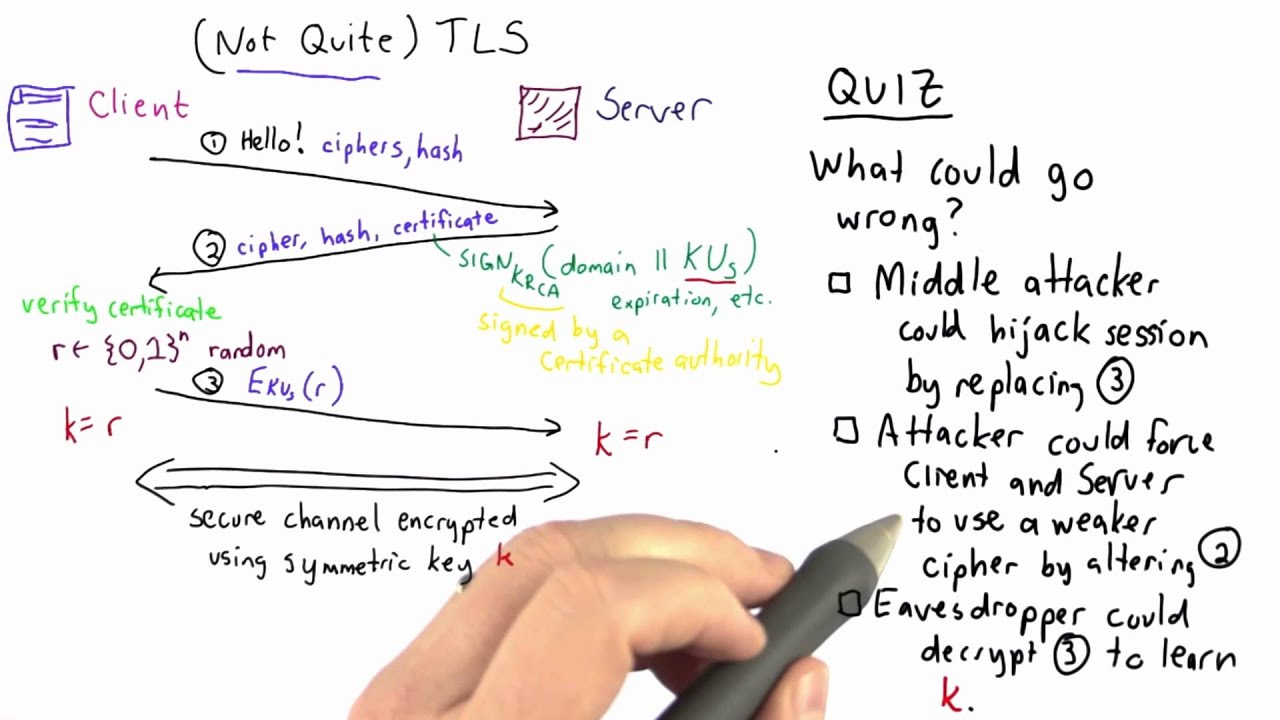 (Not Quite) TLS
Client
Server
① Hello! ciphers, hash
② cipher, hash, certificate
SIGN_KR_CA (domain || KU_S)
expiration, etc.
signed by a
certificate authority
verify certificate
r ← {0,1}ⁿ random
③ E_KU_S (r)
k = r
k = r
secure channel encrypted
using symmetric key k
QUIZ
What could go
wrong?
Middle attacker
could hijack session
by replacing ③
Attacker could force
Client and Server
to use a weaker
cipher by altering ②
Eavesdropper could
decrypt ③ to learn
k.